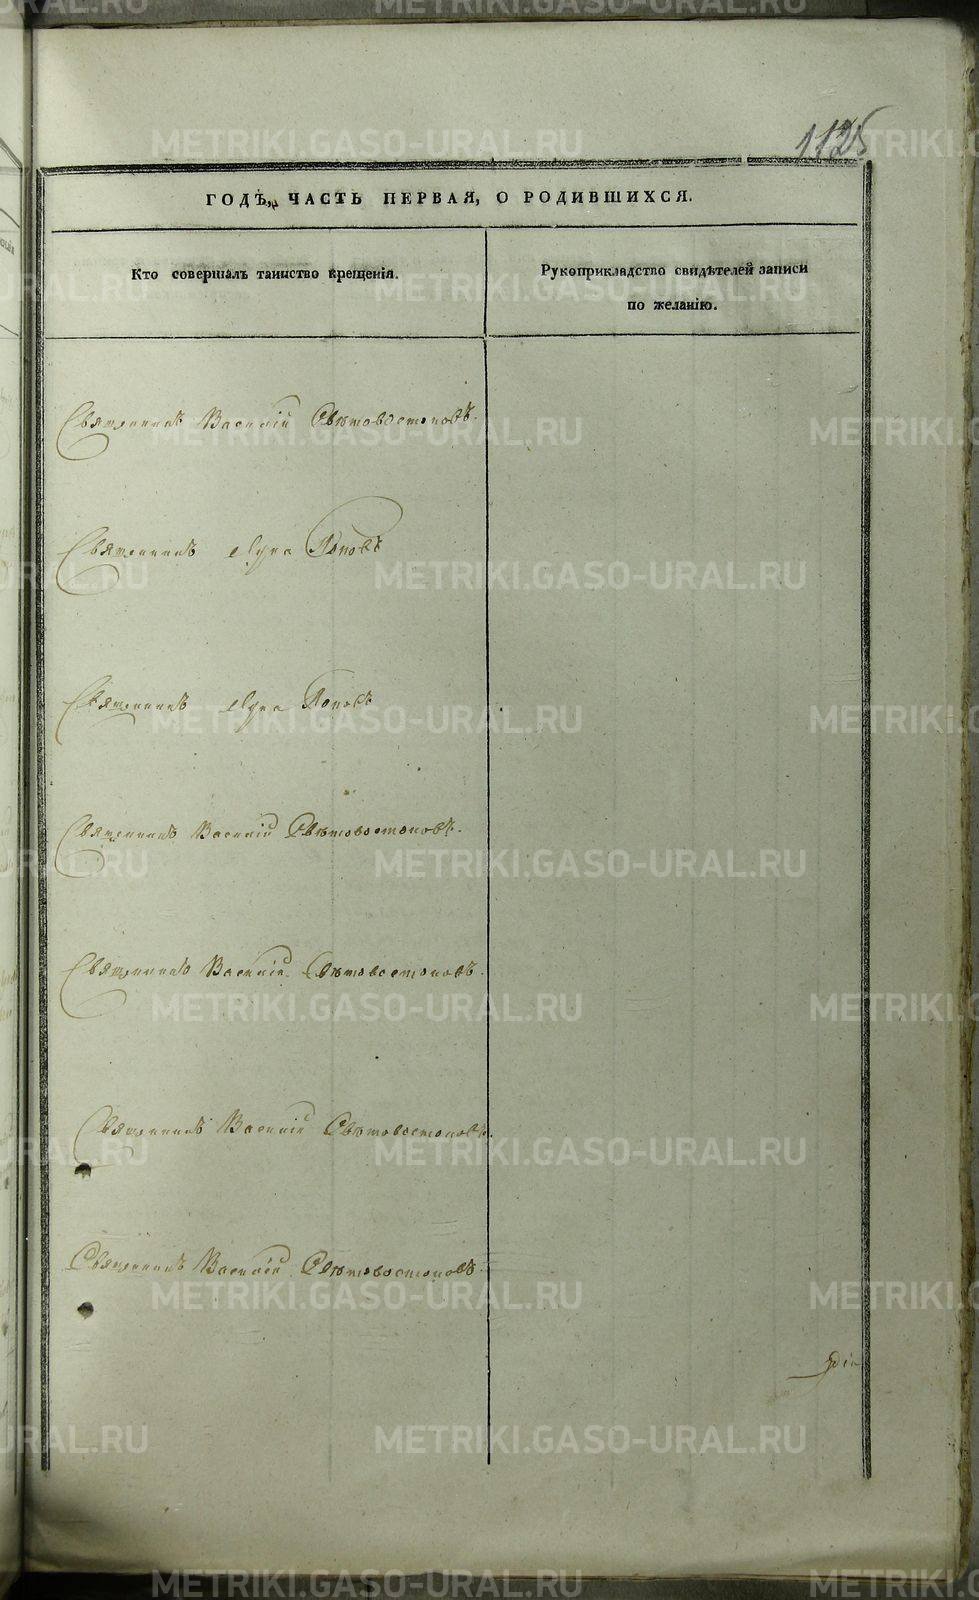 1125
ГОДѢ, ЧАСТЬ ПЕРВАЯ, О РОДИВШИХСЯ.
Кто совершалъ таинство крещенія.
Рукоприкладство свидѣтелей записи
по желанію.
Священникъ Василій Свѣтовостоковъ.
Священникъ Лука Поповъ
Священникъ Лука Поповъ
Священникъ Василій Свѣтовостоковъ.
Священникъ Василій Свѣтовостоковъ.
Священникъ Василій Свѣтовостоковъ.
Священникъ Василій Свѣтовостоковъ.
METRIKI.GASO-URAL.RU